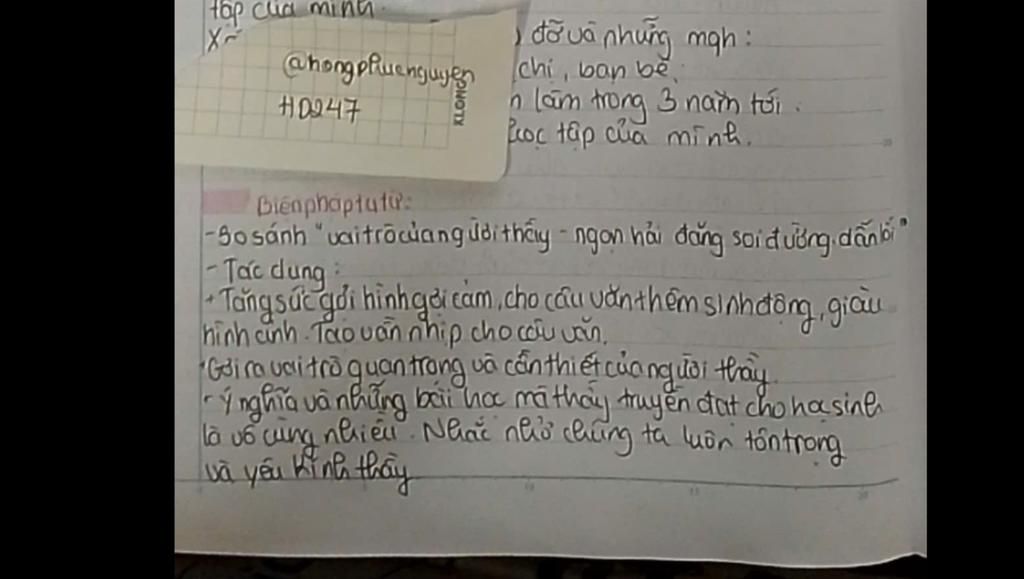 tập của mình.
đỡ và những mqh:
@hongphucnguyen
chị, bạn bè,
HD247
KLONG
làm trong 3 năm tới.
học tập của mình.
Biện pháp tu từ:
- So sánh "vai trò của người thầy - ngọn hải đăng soi đường dẫn lối"
- Tác dụng:
+ Tăng sức gợi hình gợi cảm, cho câu văn thêm sinh động, giàu
hình ảnh. Tạo vần nhịp cho câu văn.
Gợi ra vai trò quan trọng và cần thiết của người thầy.
- Ý nghĩa và những bài học mà thầy truyền đạt cho học sinh
là vô cùng nhiều. Nhắc nhở chúng ta luôn tôn trọng
và yêu kính thầy